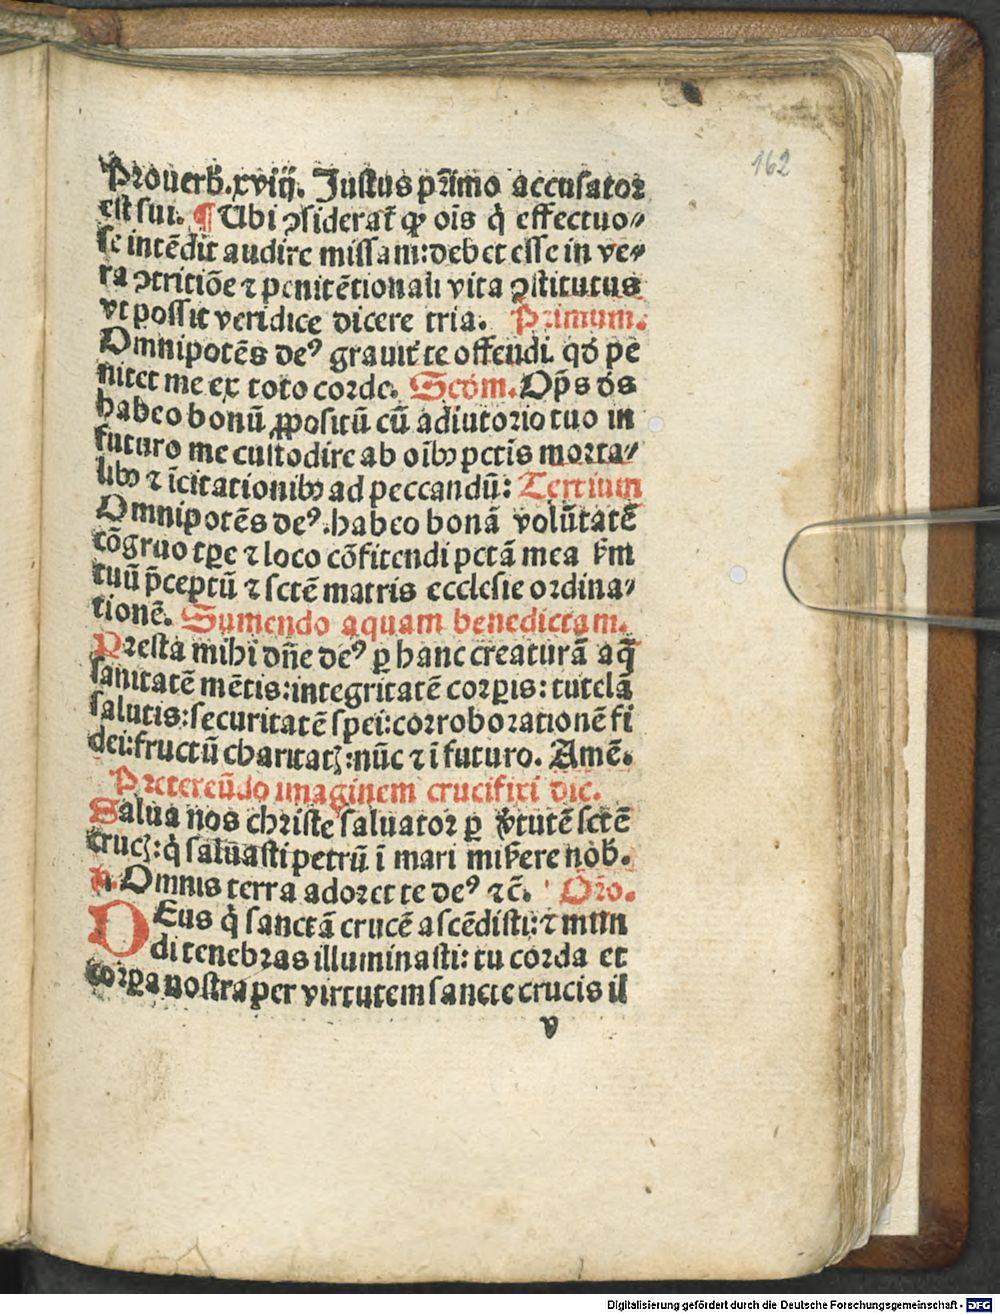 162
Prouerb̄.xviij. Justus pr̄imo accusator
est sui. ¶ Ubi ꝯsiderat̄ ꝙ oīs q̇ effectuo⸗
se intēdit audire missam:debet esse in ve⸗
ra ꝯtritiōe ⁊ penitētionali vita ꝯstitutus
vt possit veridice dicere tria. Primum.
Omnipotēs deꝰ grauit̄ te offendi. qd́ pe
nitet me ex toto corde. Scd́m. Op̄s d́s
habeo bonū ꝓpositū cū adiutorio tuo in
futuro me custodire ab oībꝫ pctīs morta⸗
libꝫ ⁊ īcitationibꝫ ad peccandū: Tertium
Omnipotēs deꝰ.habeo bonā volūtatē
cōgruo tꝑe ⁊ loco cōfitendi pctā mea km̄
tuū p̄ceptū ⁊ sctē matris ecclesie ordina⸗
tionē. Sumendo aquam benedictam.
Presta mihi dn̄e deꝰ ꝑ hanc creaturā aq̄
sanitatē mētis:integritatē corꝑis:tutelā
salutis:securitatē spei:corroborationē fi
dei:fructū charitatꝭ:nūc ⁊ ī futuro. Amē.
Pretereūdo imaginem crucifixi dic.
Salua nos christe saluator ꝑ v̄tutē sctē
crucꝭ:q̇ saluasti petrū ī mari mis̄ere nob̄.
℟. Omnis terra adoret te deꝰ ⁊c̄. Ōro.
DEus q̇ sanctā crucē ascēdisti:⁊ mun
di tenebras illuminasti:tu corda et
corꝑa nostra per virtutem sancte crucis il
v
Digitalisierung gefördert durch die Deutsche Forschungsgemeinschaft - DFG